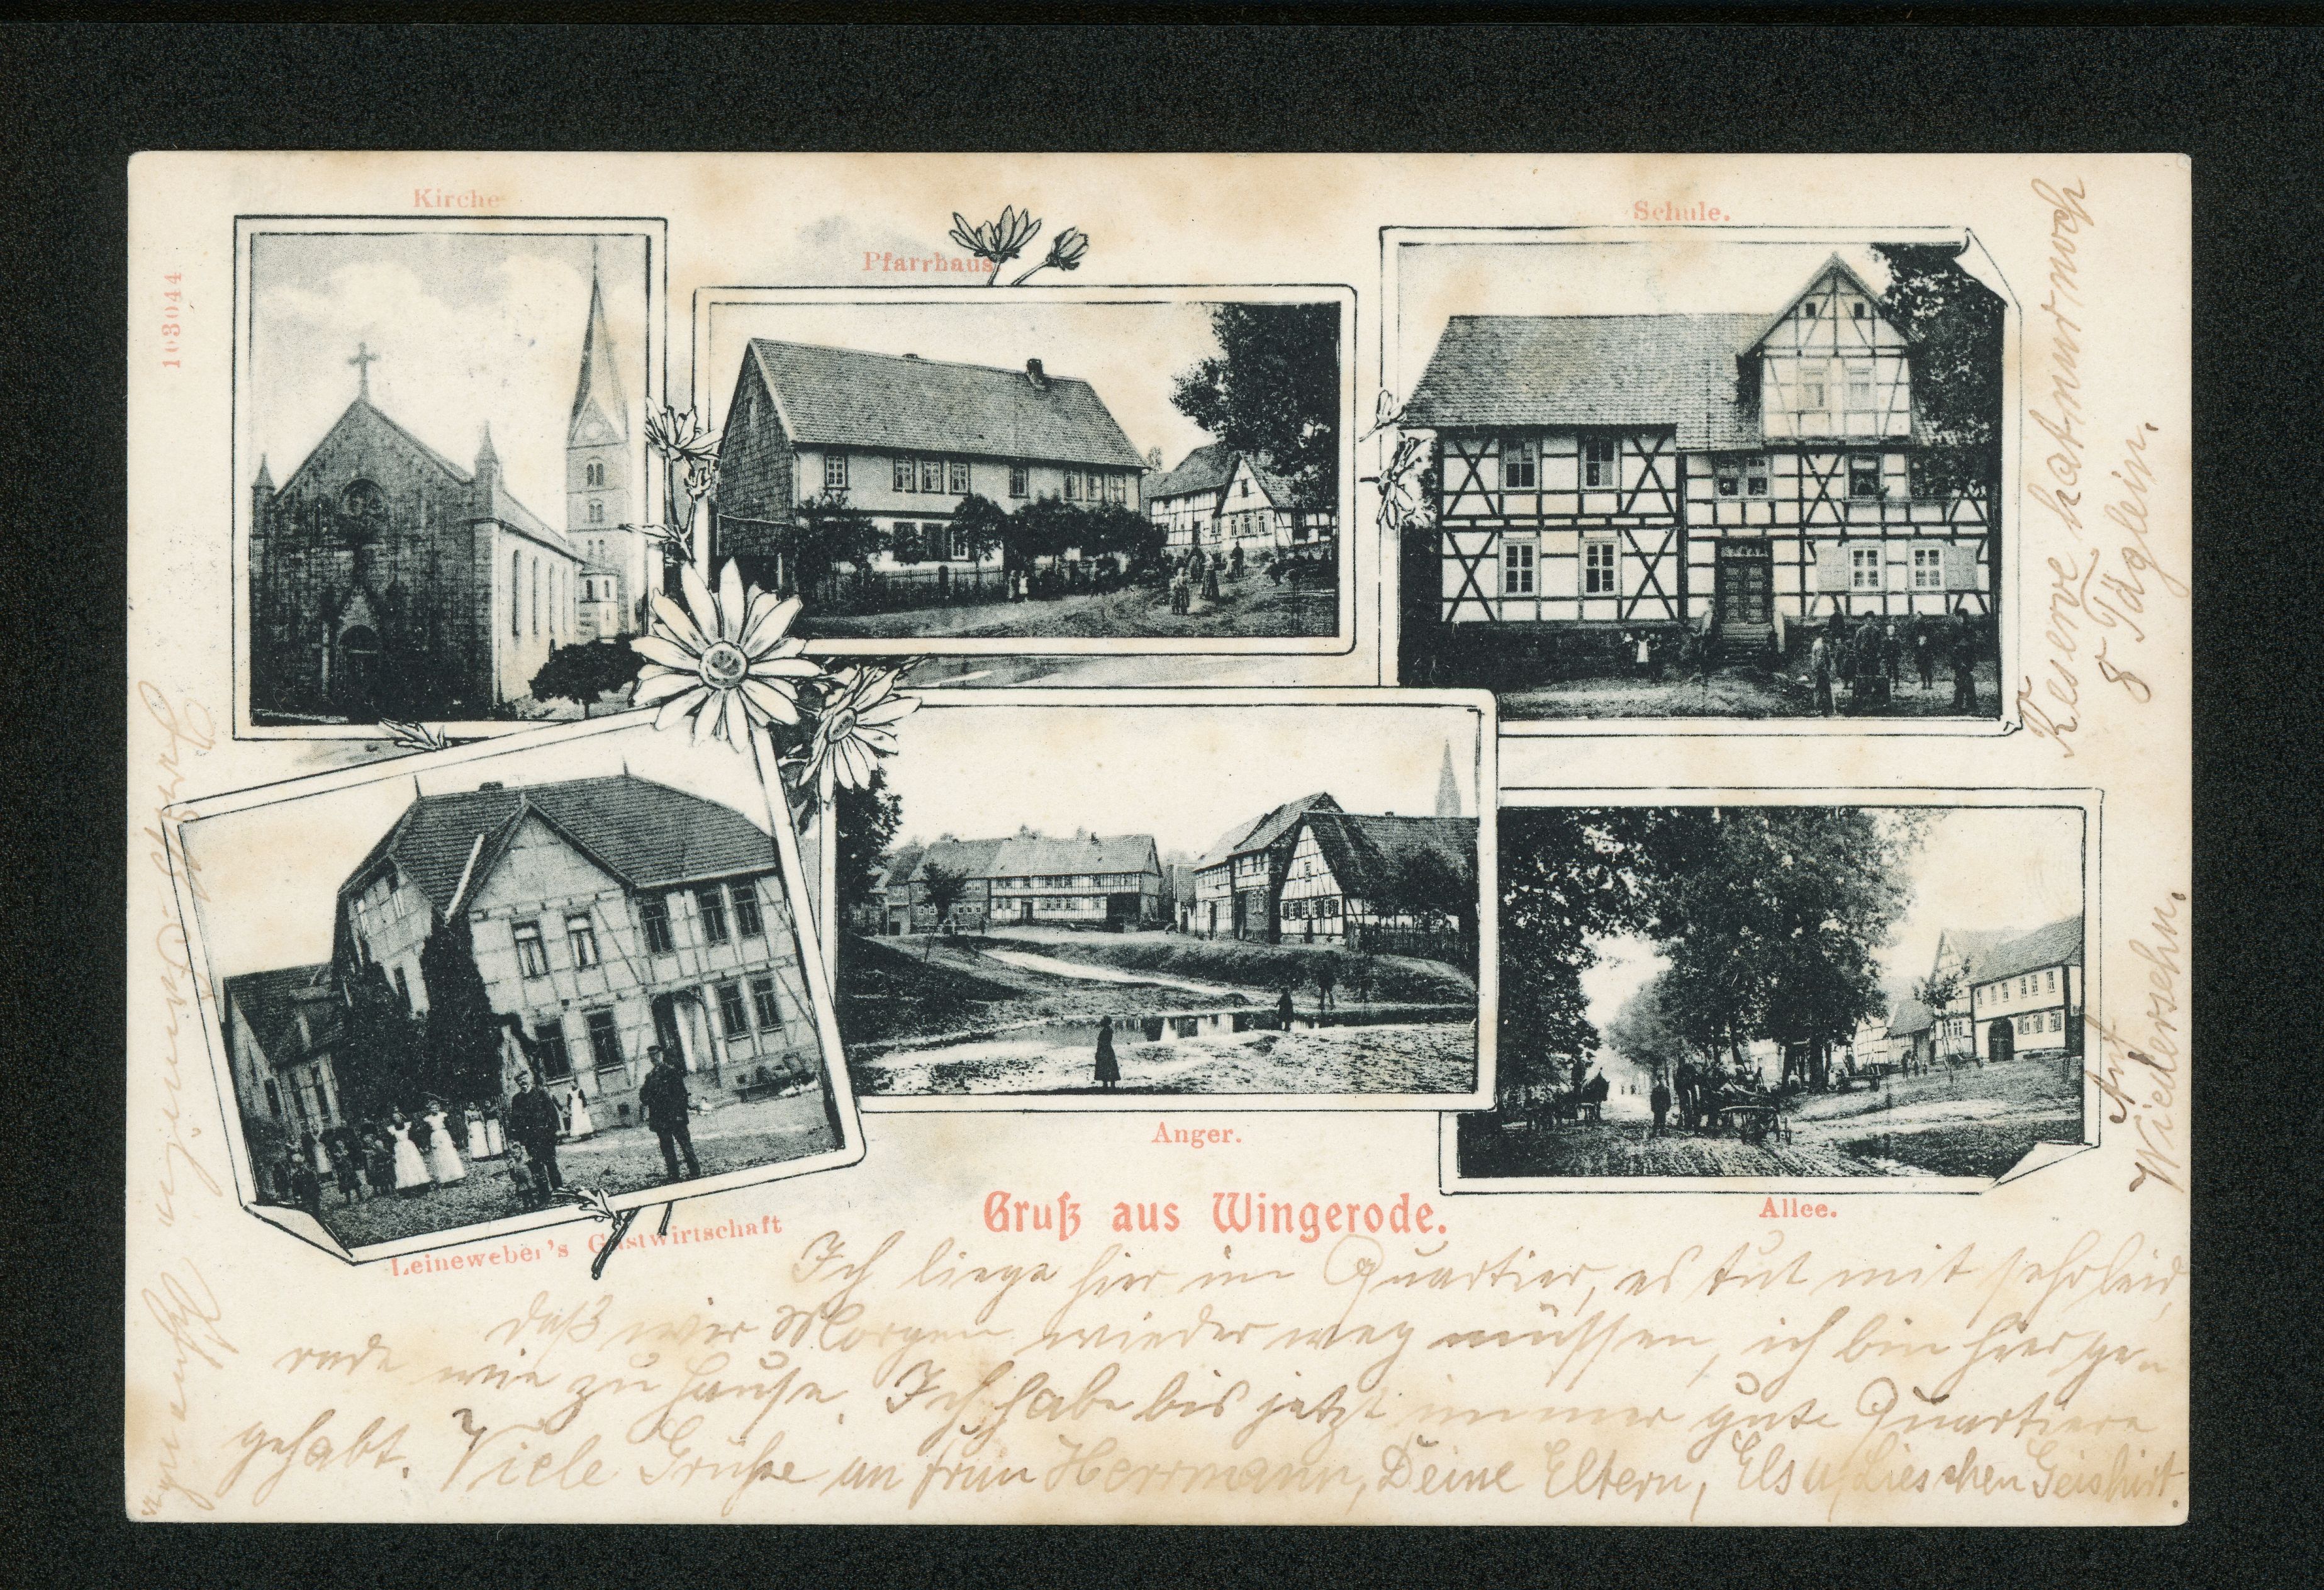 Kirche
Pfarrhaus
Schule.
103044
Anger.
Allee.
Leineweber's Gastwirtschaft
Gruß aus Wingerode.
Ich liege hier im Quartier, es tut mir sehr leid,
daß wir Morgen wieder weg müssen, ich bin hier ge-
rade wie zu Hause. Ich habe bis jetzt immer gute Quartiere
gehabt. Viele Grüße an Frau Herrmann, Deine Eltern, Els u. Lieschen Geishirt.
Reserve hat nur noch
8 Täglein.
Auf
Wiedersehn.